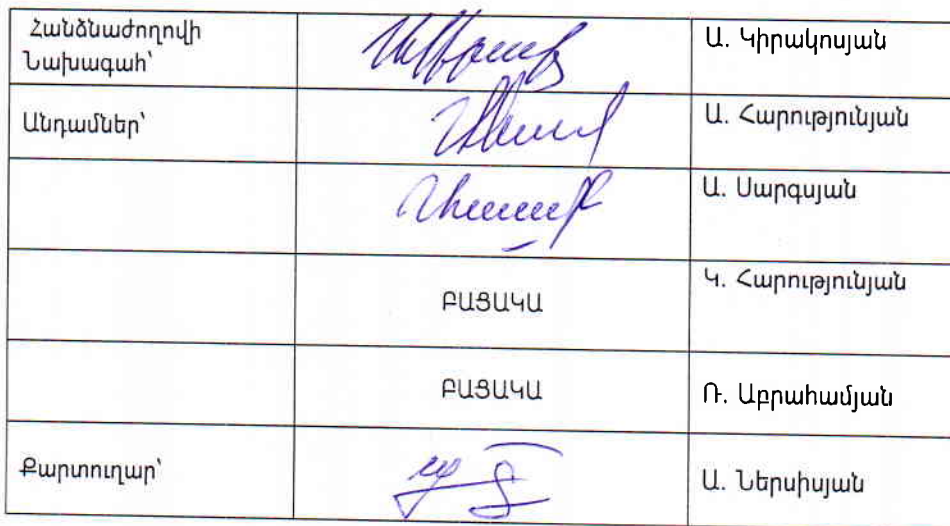 Հանձնաժողովի
Նախագահ՝
Ա. Կիրակոսյան
Անդամներ՝
Ա. Հարությունյան
Ա. Սարգսյան
ԲԱՑԱԿԱ
Կ. Հարությունյան
ԲԱՑԱԿԱ
Ռ. Աբրահամյան
Քարտուղար՝
Ա. Ներսիսյան